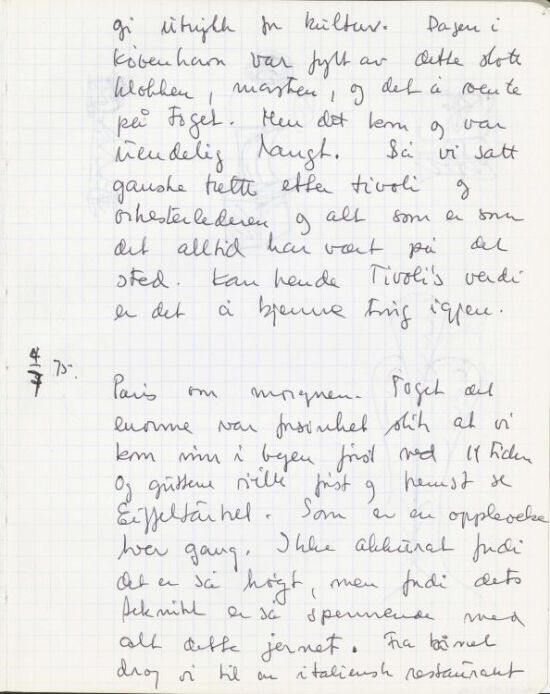 gi uttrykk for kultur. Dagen i
København var fylt av dette slott
klokken, masten, og det å vente
på toget. Men det kom og var
uendelig langt. Så vi satt
ganske trette etter tivoli og
orkesterlederen og alt som er som
det alltid har vært på det
sted. Kan hende Tivoli's verdi
er det å kjenne ting igjen.
4/7 75.
Paris om morgenen. Toget det
enorme var forsinket slik at vi
kom inn i byen først ved 11 tiden
Og guttene ville først og fremst se
Eiffeltårnet. Som er en opplevelse
hver gang. Ikke akkurat fordi
det er så høgt, men fordi dets
teknikk er så spennende med
alt dette jernet. Fra tårnet
drog vi til en italiensk restaurant